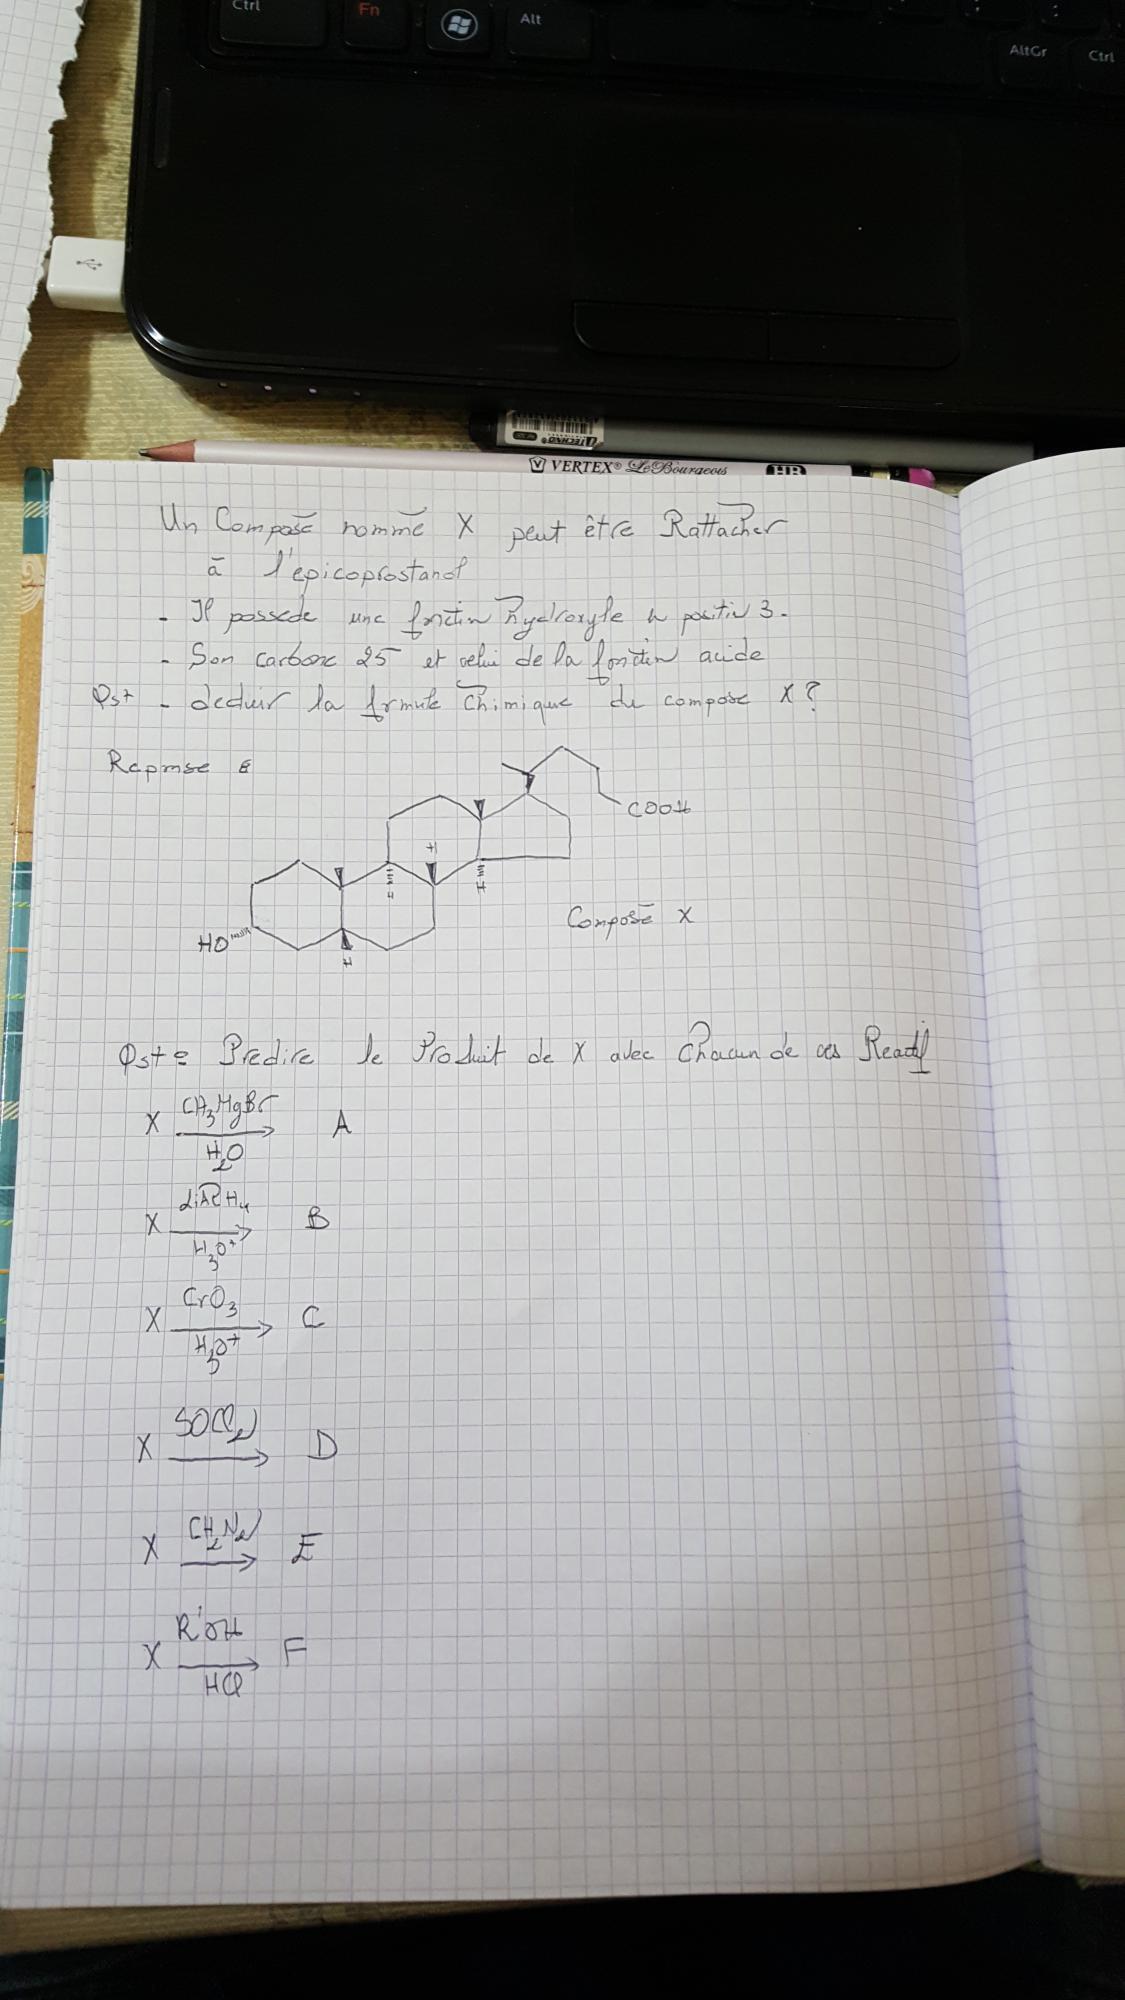 Ctrl
Fn
Alt
AltGr
Ctrl
TECHNO
VERTEX® Le Bourgeois HB
Un Composé nommé X peut être Rattacher
à l'épicoprostanol
- Il possede une fonction hydroxyle en position 3.
- Son carbone 25 et celui de la fonction acide
Qst - deduir la formule chimique du composé X?
Reponse
COOH
H
H
H
HO
H
Composé X
Qst = Predire le Produit de X avec Chacun de ces Reactif
X CH3MgBr A
H2O
X LiAlH4 B
H3O+
X CrO3 C
H3O+
X SOCl2 D
X CH2N2 E
X R'OH F
HCl